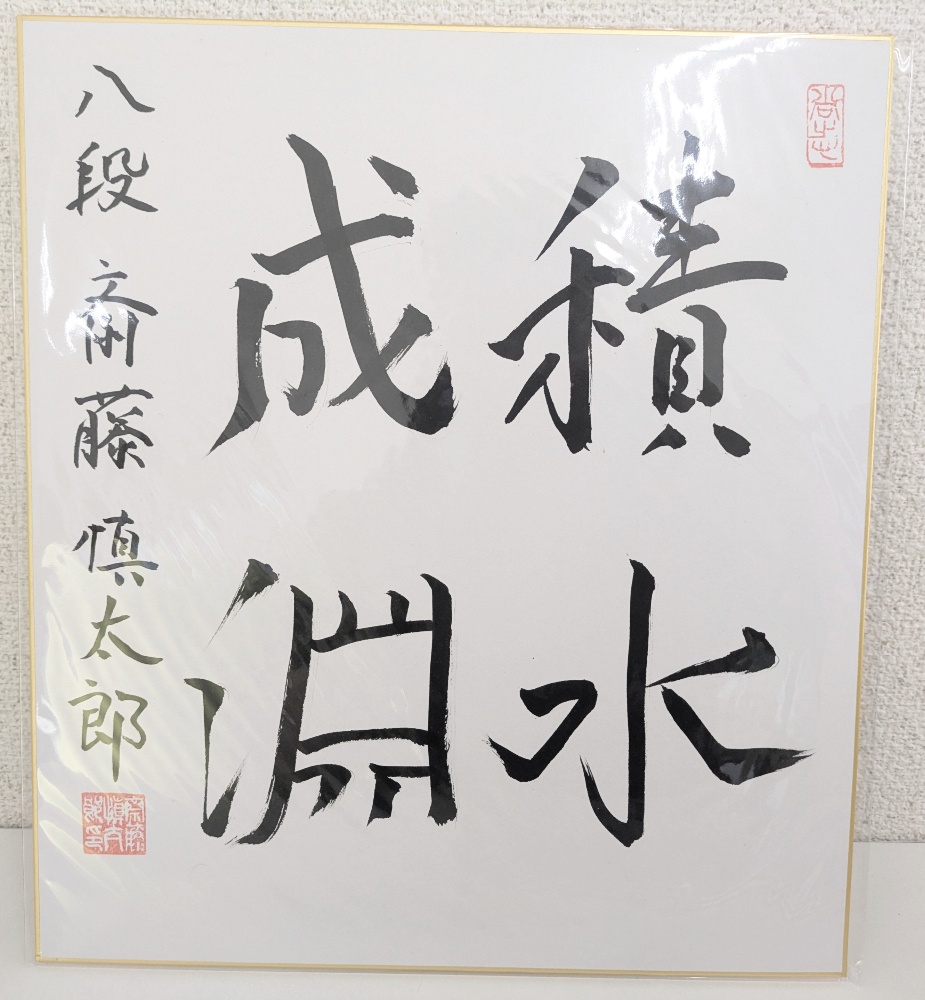 積水
成淵
八段 斎藤 慎太郎
尚志